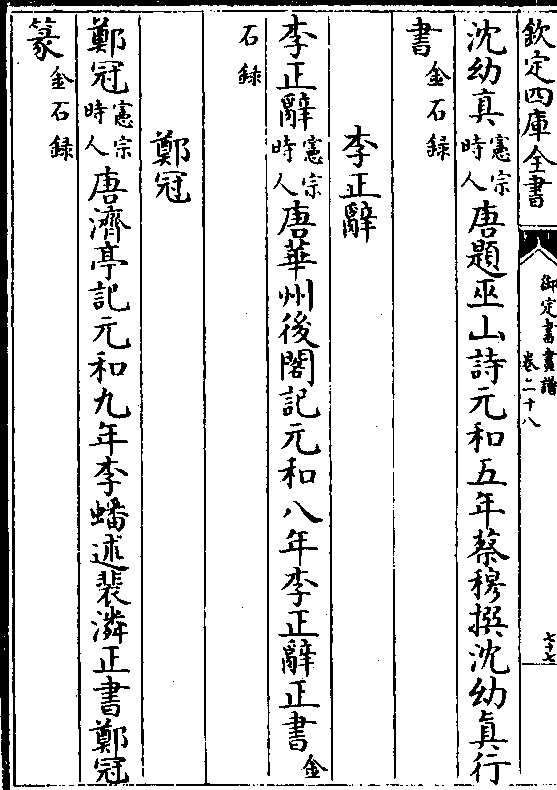 欽定四庫全書
御定書畫譜
卷二十八
七十七
沈幼真憲宗時人唐題巫山詩元和五年蔡穆撰沈幼眞行
書金石録
李正辭
李正辭憲宗時人唐華州後閣記元和八年李正辭正書金
石録
鄭冠
鄭冠憲宗時人唐濟亭記元和九年李蟠述裴潾正書鄭冠
篆金石録